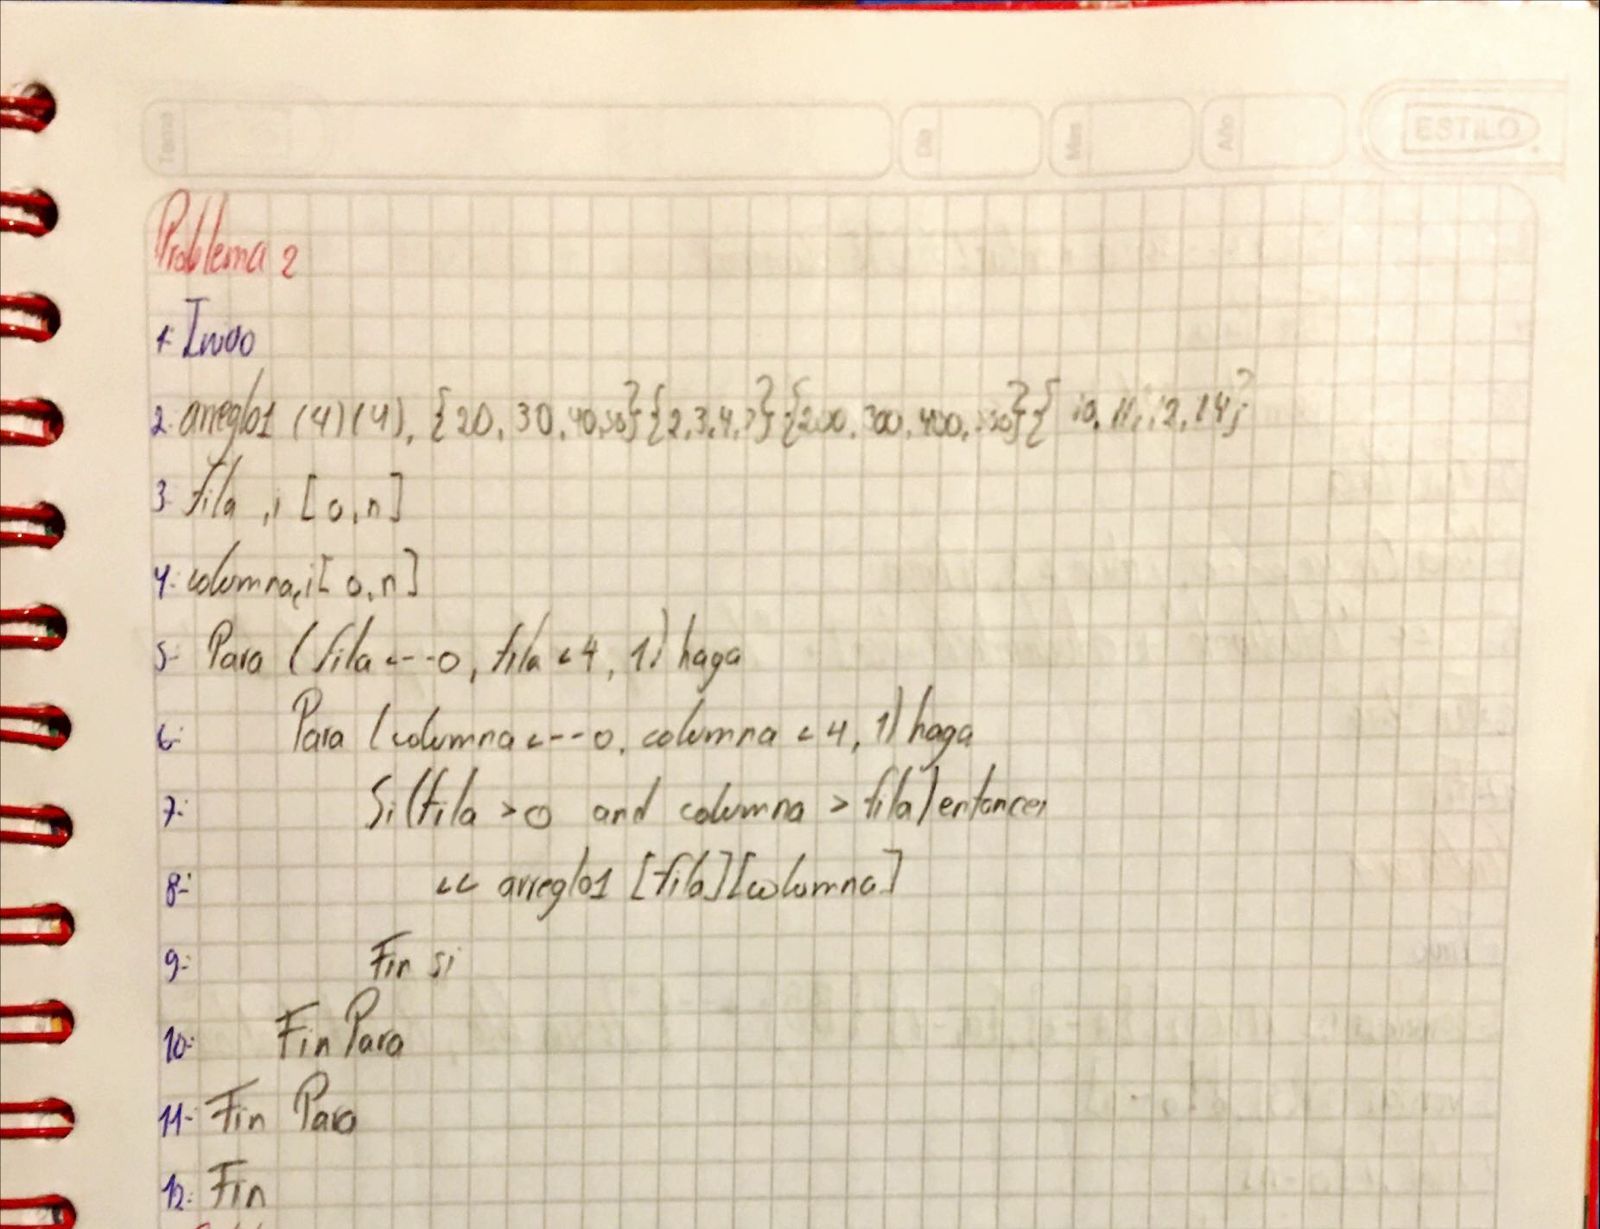 Tema
Día
Mes
Año
ESTILO
Problema 2
1- Inicio
2- arreglo1 (4)(4), {20, 30, 40, 50}{2,3,4,5}{200, 300, 400, 500}{10, 11, 12, 14}
3- fila ,i [0,n]
4- columna,i[0,n]
5- Para (fila <--0, fila <4, 1) haga
6- Para (columna <--0, columna <4, 1) haga
7- Si(fila >0 and columna > fila) entonces
8- << arreglo1 [fila][columna]
9- Fin si
10- Fin Para
11- Fin Para
12- Fin